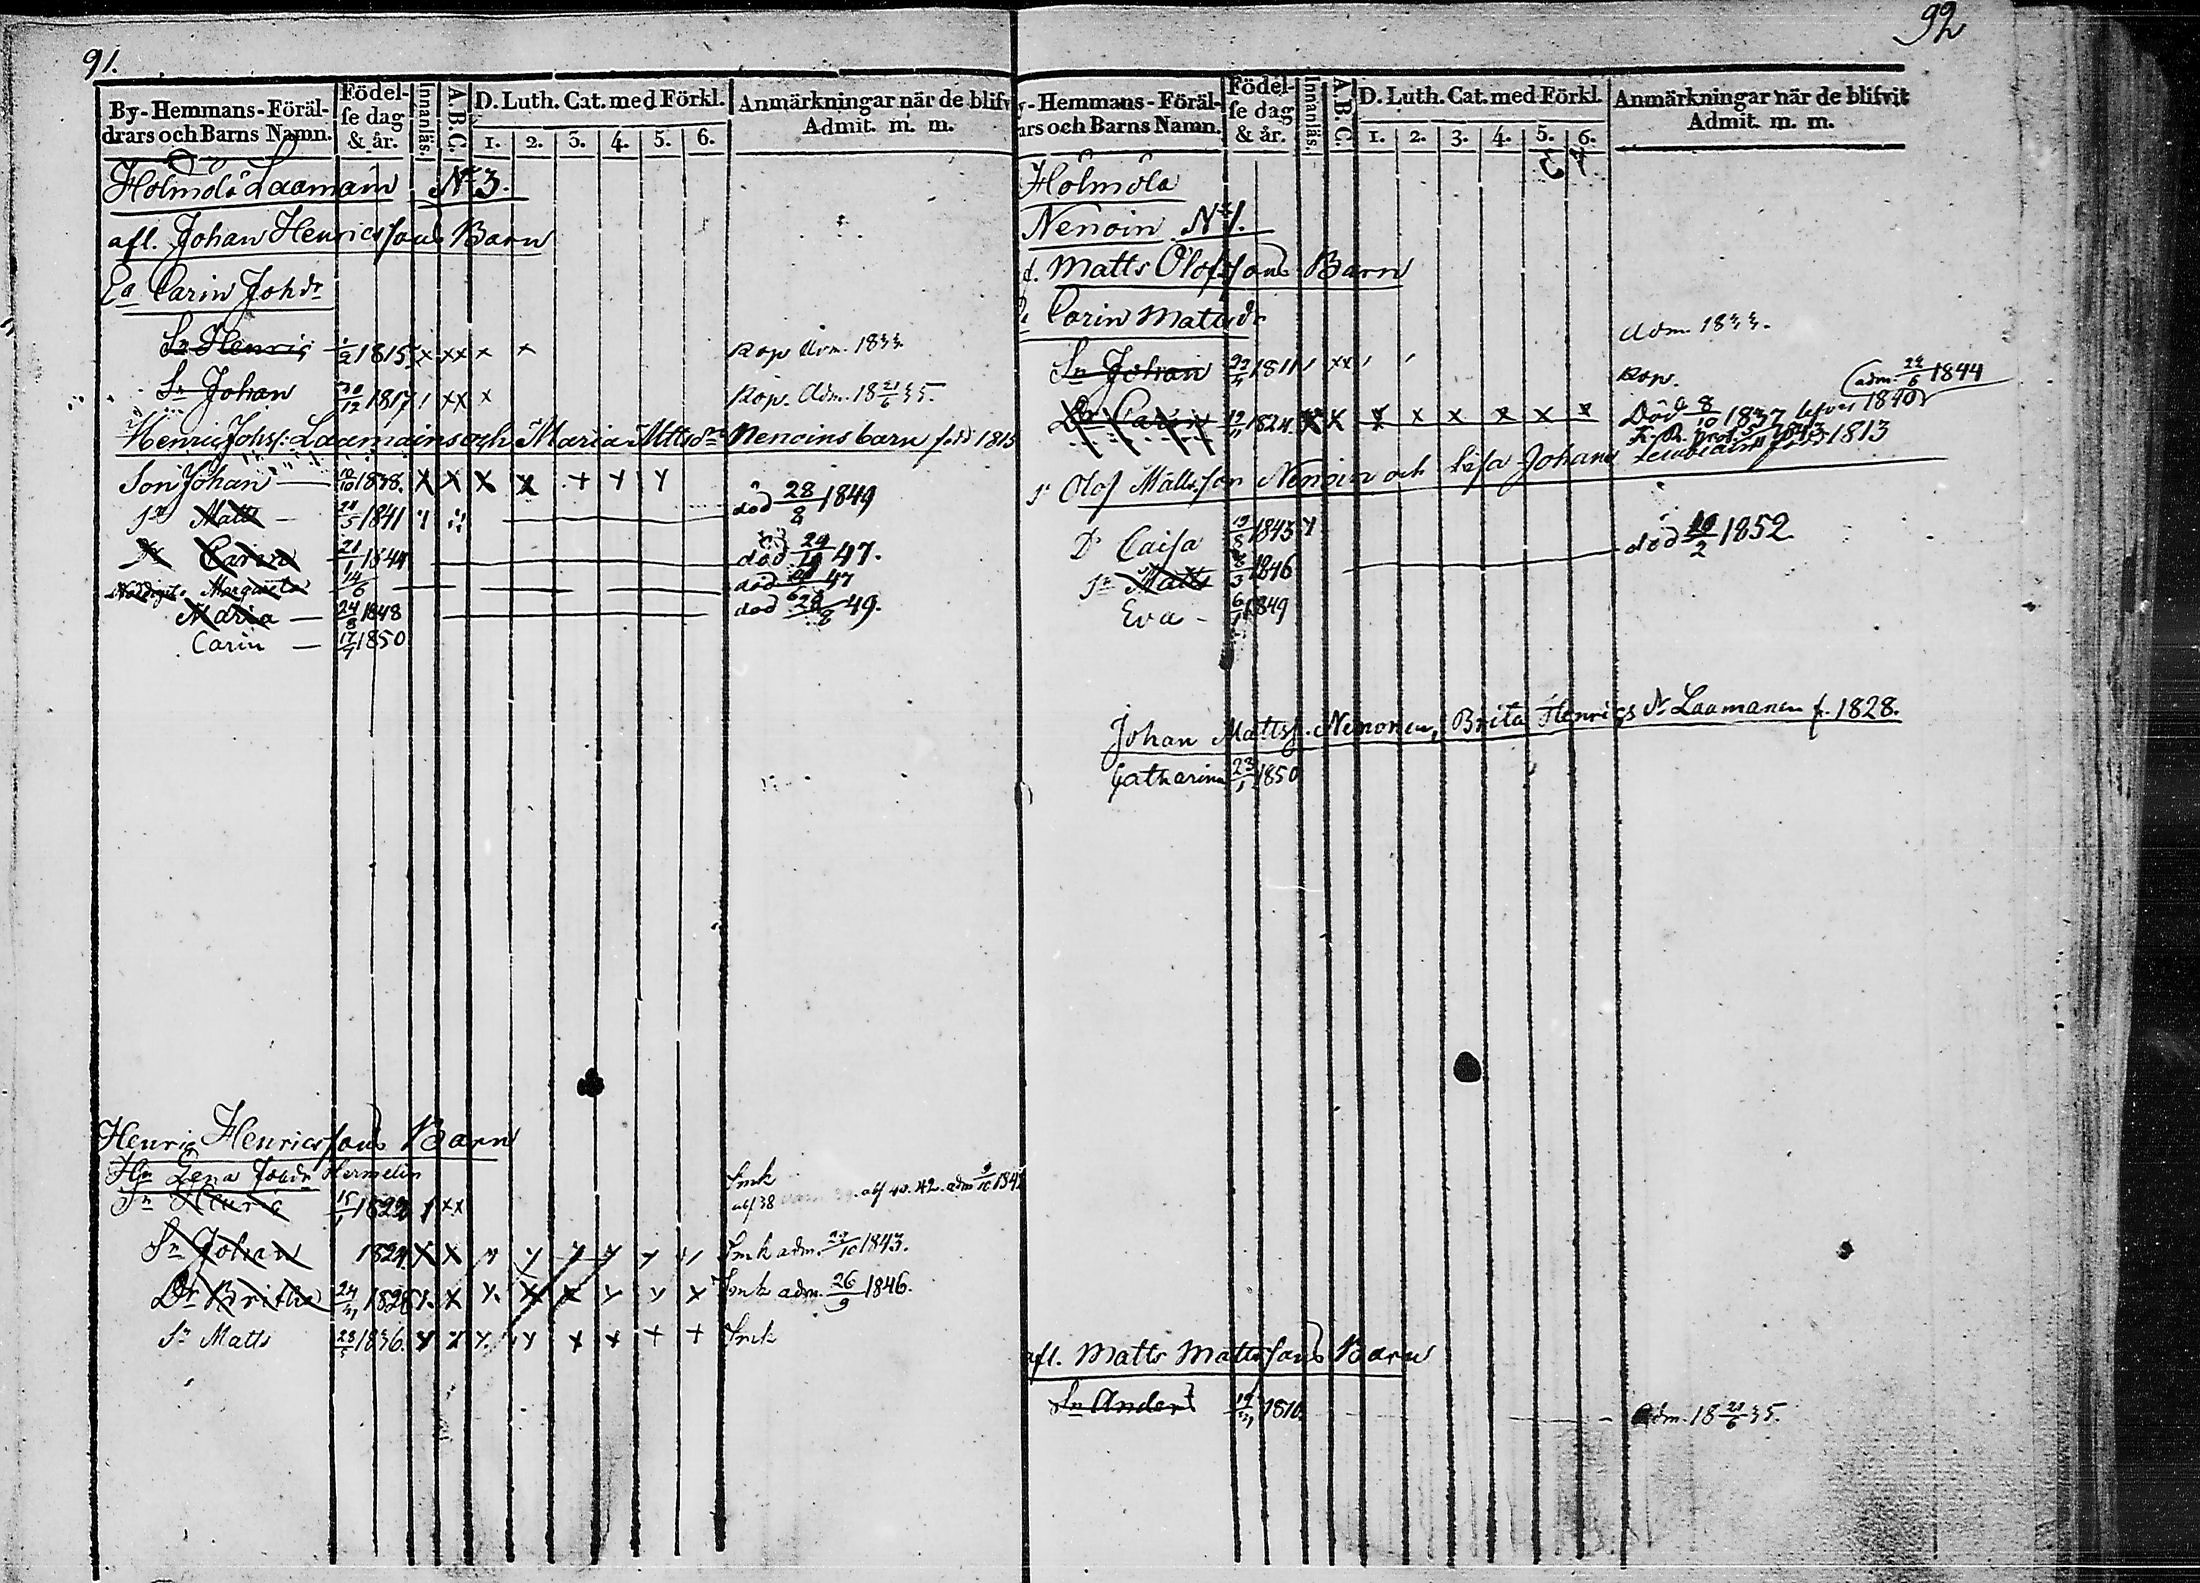 91.
By-Hemmans-Föräl-
drars och Barns Namn.
Födel-
se dag
& år.
Innanläs.
A.B.C.
D. Luth. Cat. med Förkl.
1. 2. 3. 4. 5. 6.
Anmärkningar när de blifv
Admit. m. m.
Holmölä Laamain N:3.
afl. Johan Henricssons Barn
Ea Carin Johdr
Sn Henric 1815 x xx x x Kop Adm. 1833.
Sn Johan 30/12 1817 / xx x Kop. Adm. 18 21/6 35.
Henric Johss: Laamains och Maria Mttsdr Nenoins barn född 1815
Son Johan 10/10 1838. x x x x + y y
Sn Matts 21/5 1841 död 28/8 1849
Dr Carin 21/1 1844 död 29/10 47.
Nöddöpt. Margareta 14/6 död 47
Maria 24/8 1848 död 28/8 49.
Carin 17/7 1850
Henric Henricssons Barn
Hu Lena Johdr Hermelin
Sn Henric 15/1 1822 / xx Smk
abs 38 abs 40. 42. adm 9/10 184
Sn Johan 1824 x x Smk adm. 23/10 1843.
Dr Britha 24/11 1828 x Smk adm. 26/9 1846.
Sn Matts 1836. Smk
92
-Hemmans-Föräl-
ars och Barns Namn.
Födel-
se dag
& år.
Innanläs.
A.B.C.
D. Luth. Cat. med Förkl.
1. 2. 3. 4. 5. 6.
Anmärkningar när de blifvit
Admit. m. m.
Holmölä
Nenoin N:1.
f. Matts Olofssons Barn
Carin Mattsdr
Adm. 1833.
Sn Johan 1811 / xx / / Kop.
(adm. 24/6 1844
Dr Carin 1824 x x x x x x x x Död 8/10 1837 lefver 1840
Sn Olof Mattsson Nenoin och Lisa Johans 1813
Dr Caisa 19/8 1843 y
Sn Matts 8/3 1846 död 20/2 1852.
Eva - 6/1 1849
Johan Mattss. Nenonen, Brita Henrics dr Laamanen f. 1828.
Catharina 23/1 1850
afl. Matts Mattssons Barn
Sn Anders 1816 Adm. 18 21/6 35.